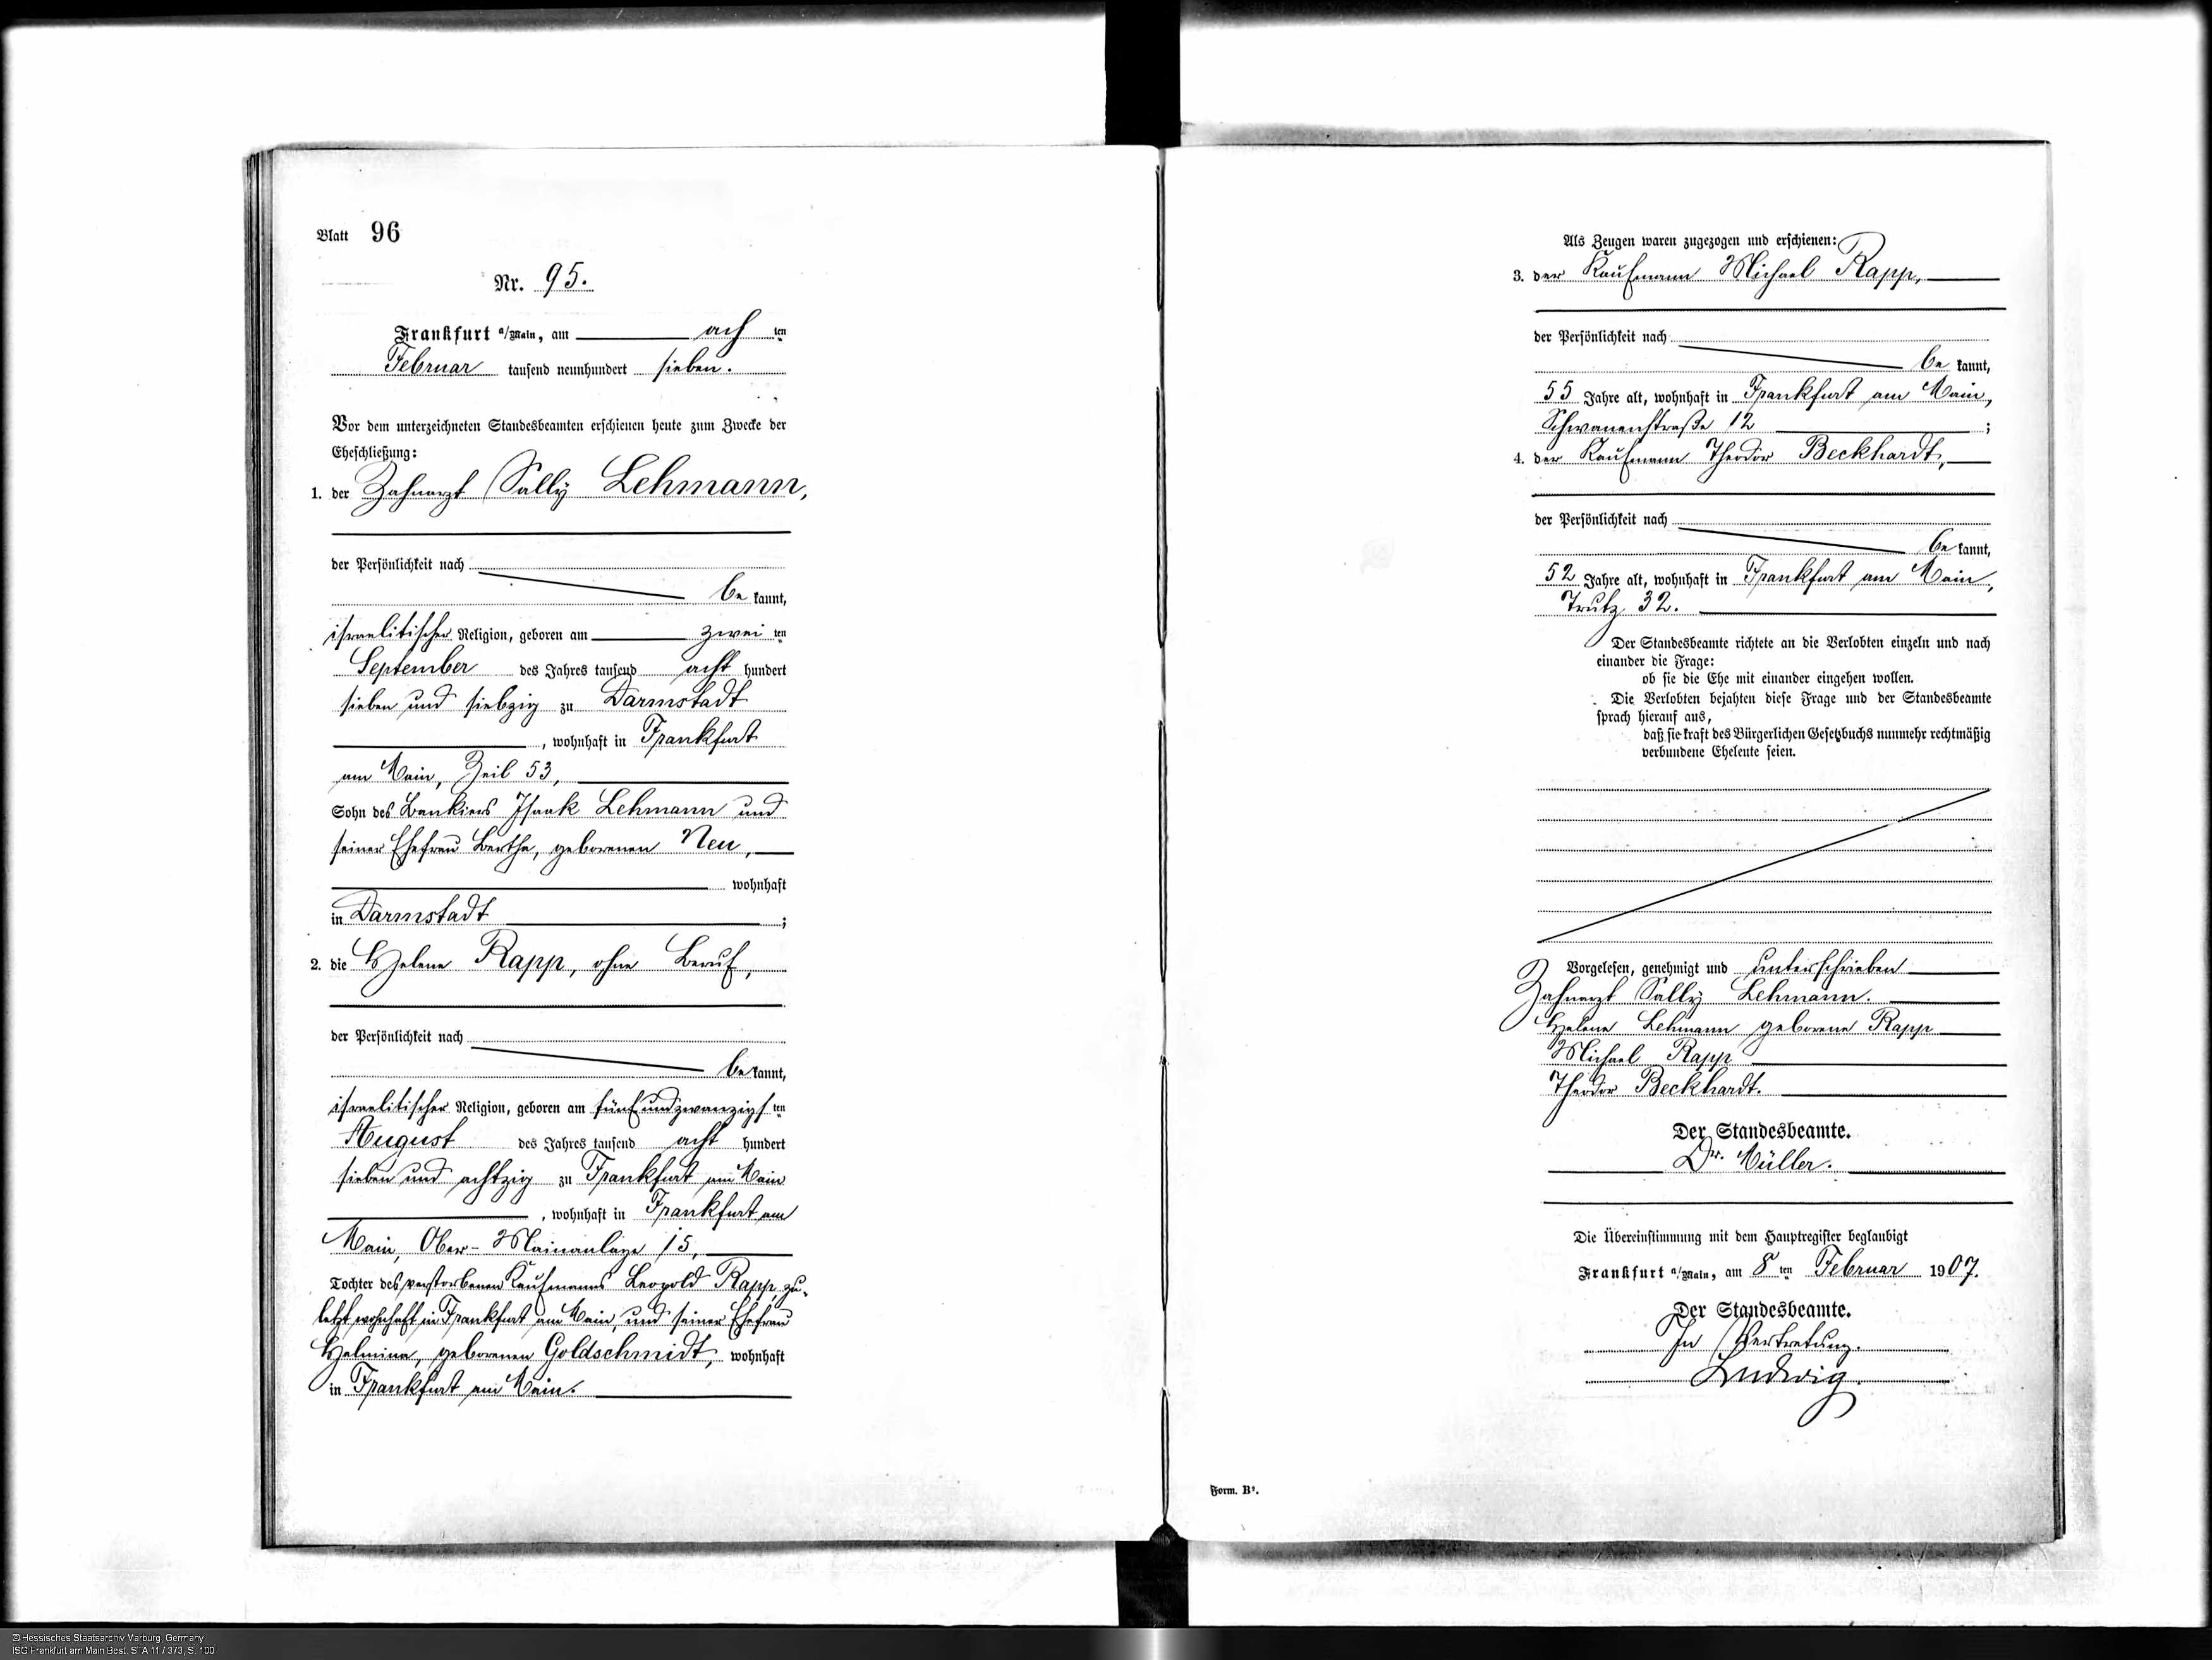 Blatt 96
Nr. 95.
Frankfurt a/Main, am ach ten
Februar tausend neunhundert sieben.
Vor dem unterzeichneten Standesbeamten erschienen heute zum Zwecke der
Eheschließung:
1. der Zahnarzt Sally Lehmann,
der Persönlichkeit nach
be kannt,
israelitischer Religion, geboren am zwei ten
September des Jahres tausend acht hundert
sieben und siebzig zu Darmstadt
, wohnhaft in Frankfurt
am Main, Zeil 53,
Sohn des Bankiers Isaak Lehmann und
seiner Ehefrau Bertha, geborenen Neu,
wohnhaft
in Darmstadt ;
2. die Helene Rapp, ohne Beruf,
der Persönlichkeit nach
be kannt,
israelitischer Religion, geboren am fünfundzwanzigs ten
August des Jahres tausend acht hundert
sieben und achtzig zu Frankfurt am Main
, wohnhaft in Frankfurt am
Main, Ober-Mainanlage 15,
Tochter des verstorbenen Kaufmanns Leopold Rapp, zu-
letzt wohnhaft in Frankfurt am Main, und seiner Ehefrau
Helmina, geborenen Goldschmidt, wohnhaft
in Frankfurt am Main.
Als Zeugen waren zugezogen und erschienen:
3. der Kaufmann Michael Rapp,
der Persönlichkeit nach
be kannt,
55 Jahre alt, wohnhaft in Frankfurt am Main,
Schwanenstraße 12 ;
4. der Kaufmann Theodor Beckhardt,
der Persönlichkeit nach
be kannt,
52 Jahre alt, wohnhaft in Frankfurt am Main,
Trutz 32.
Der Standesbeamte richtete an die Verlobten einzeln und nach
einander die Frage:
ob sie die Ehe mit einander eingehen wollen.
Die Verlobten bejahten diese Frage und der Standesbeamte
sprach hierauf aus,
daß sie kraft des Bürgerlichen Gesetzbuchs nunmehr rechtmäßig
verbundene Eheleute seien.
Vorgelesen, genehmigt und unterschrieben
Zahnarzt Sally Lehmann.
Helene Lehmann geborene Rapp
Michael Rapp
Theodor Beckhardt.
Der Standesbeamte.
Dr. Müller.
Die Übereinstimmung mit dem Hauptregister beglaubigt
Frankfurt a/Main, am 8 ten Februar 1907.
Der Standesbeamte.
In Vertretung.
Ludwig.
Form. B¹.
© Hessisches Staatsarchiv Marburg, Germany
ISG Frankfurt am Main Best. STA 11 / 373, S. 100